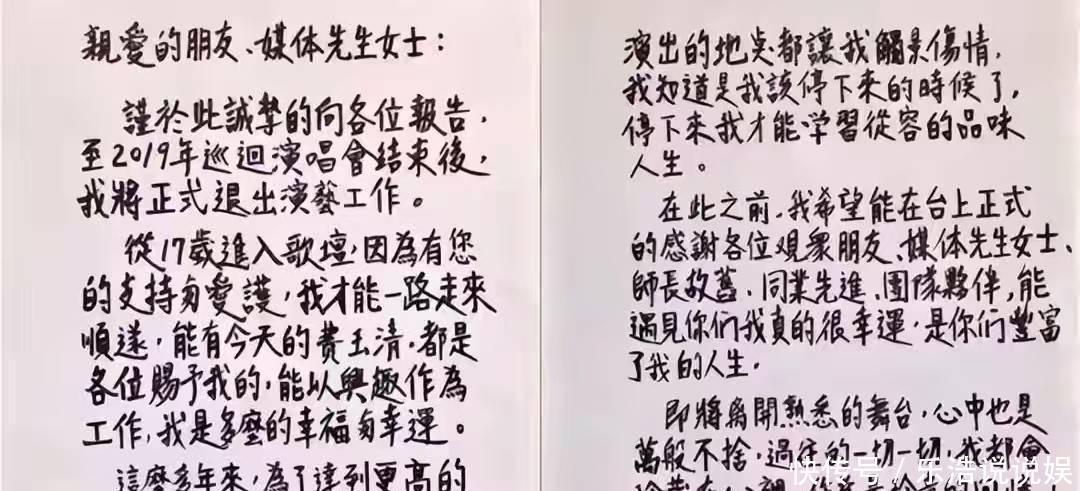 親愛的朋友、媒体先生女士：
謹於此誠摯的向各位報告，
至2019年巡迴演唱會結束後，
我將正式退出演藝工作。
從17歲進入歌壇，因為有您
的支持與愛護，我才能一路走來
順遂，能有今天的費玉清，都是
各位賜予我的，能以興趣作為
工作，我是多麼的幸福與幸運。
這麼多年來，為了達到更高的
演出的地点都讓我觸景傷情，
我知道是我該停下來的時候了，
停下來我才能学習從容的品味
人生。
在此之前，我希望能在台上正式
的感謝各位观眾朋友、媒体先生女士、
師長故舊、同業先進、團隊夥伴，能
遇見你们我真的很幸運，是你们豐富
了我的人生。
即將离開熟悉的舞台，心中也是
萬般不捨，過往的一切一切，我都會
快传号/乐浩说说娱